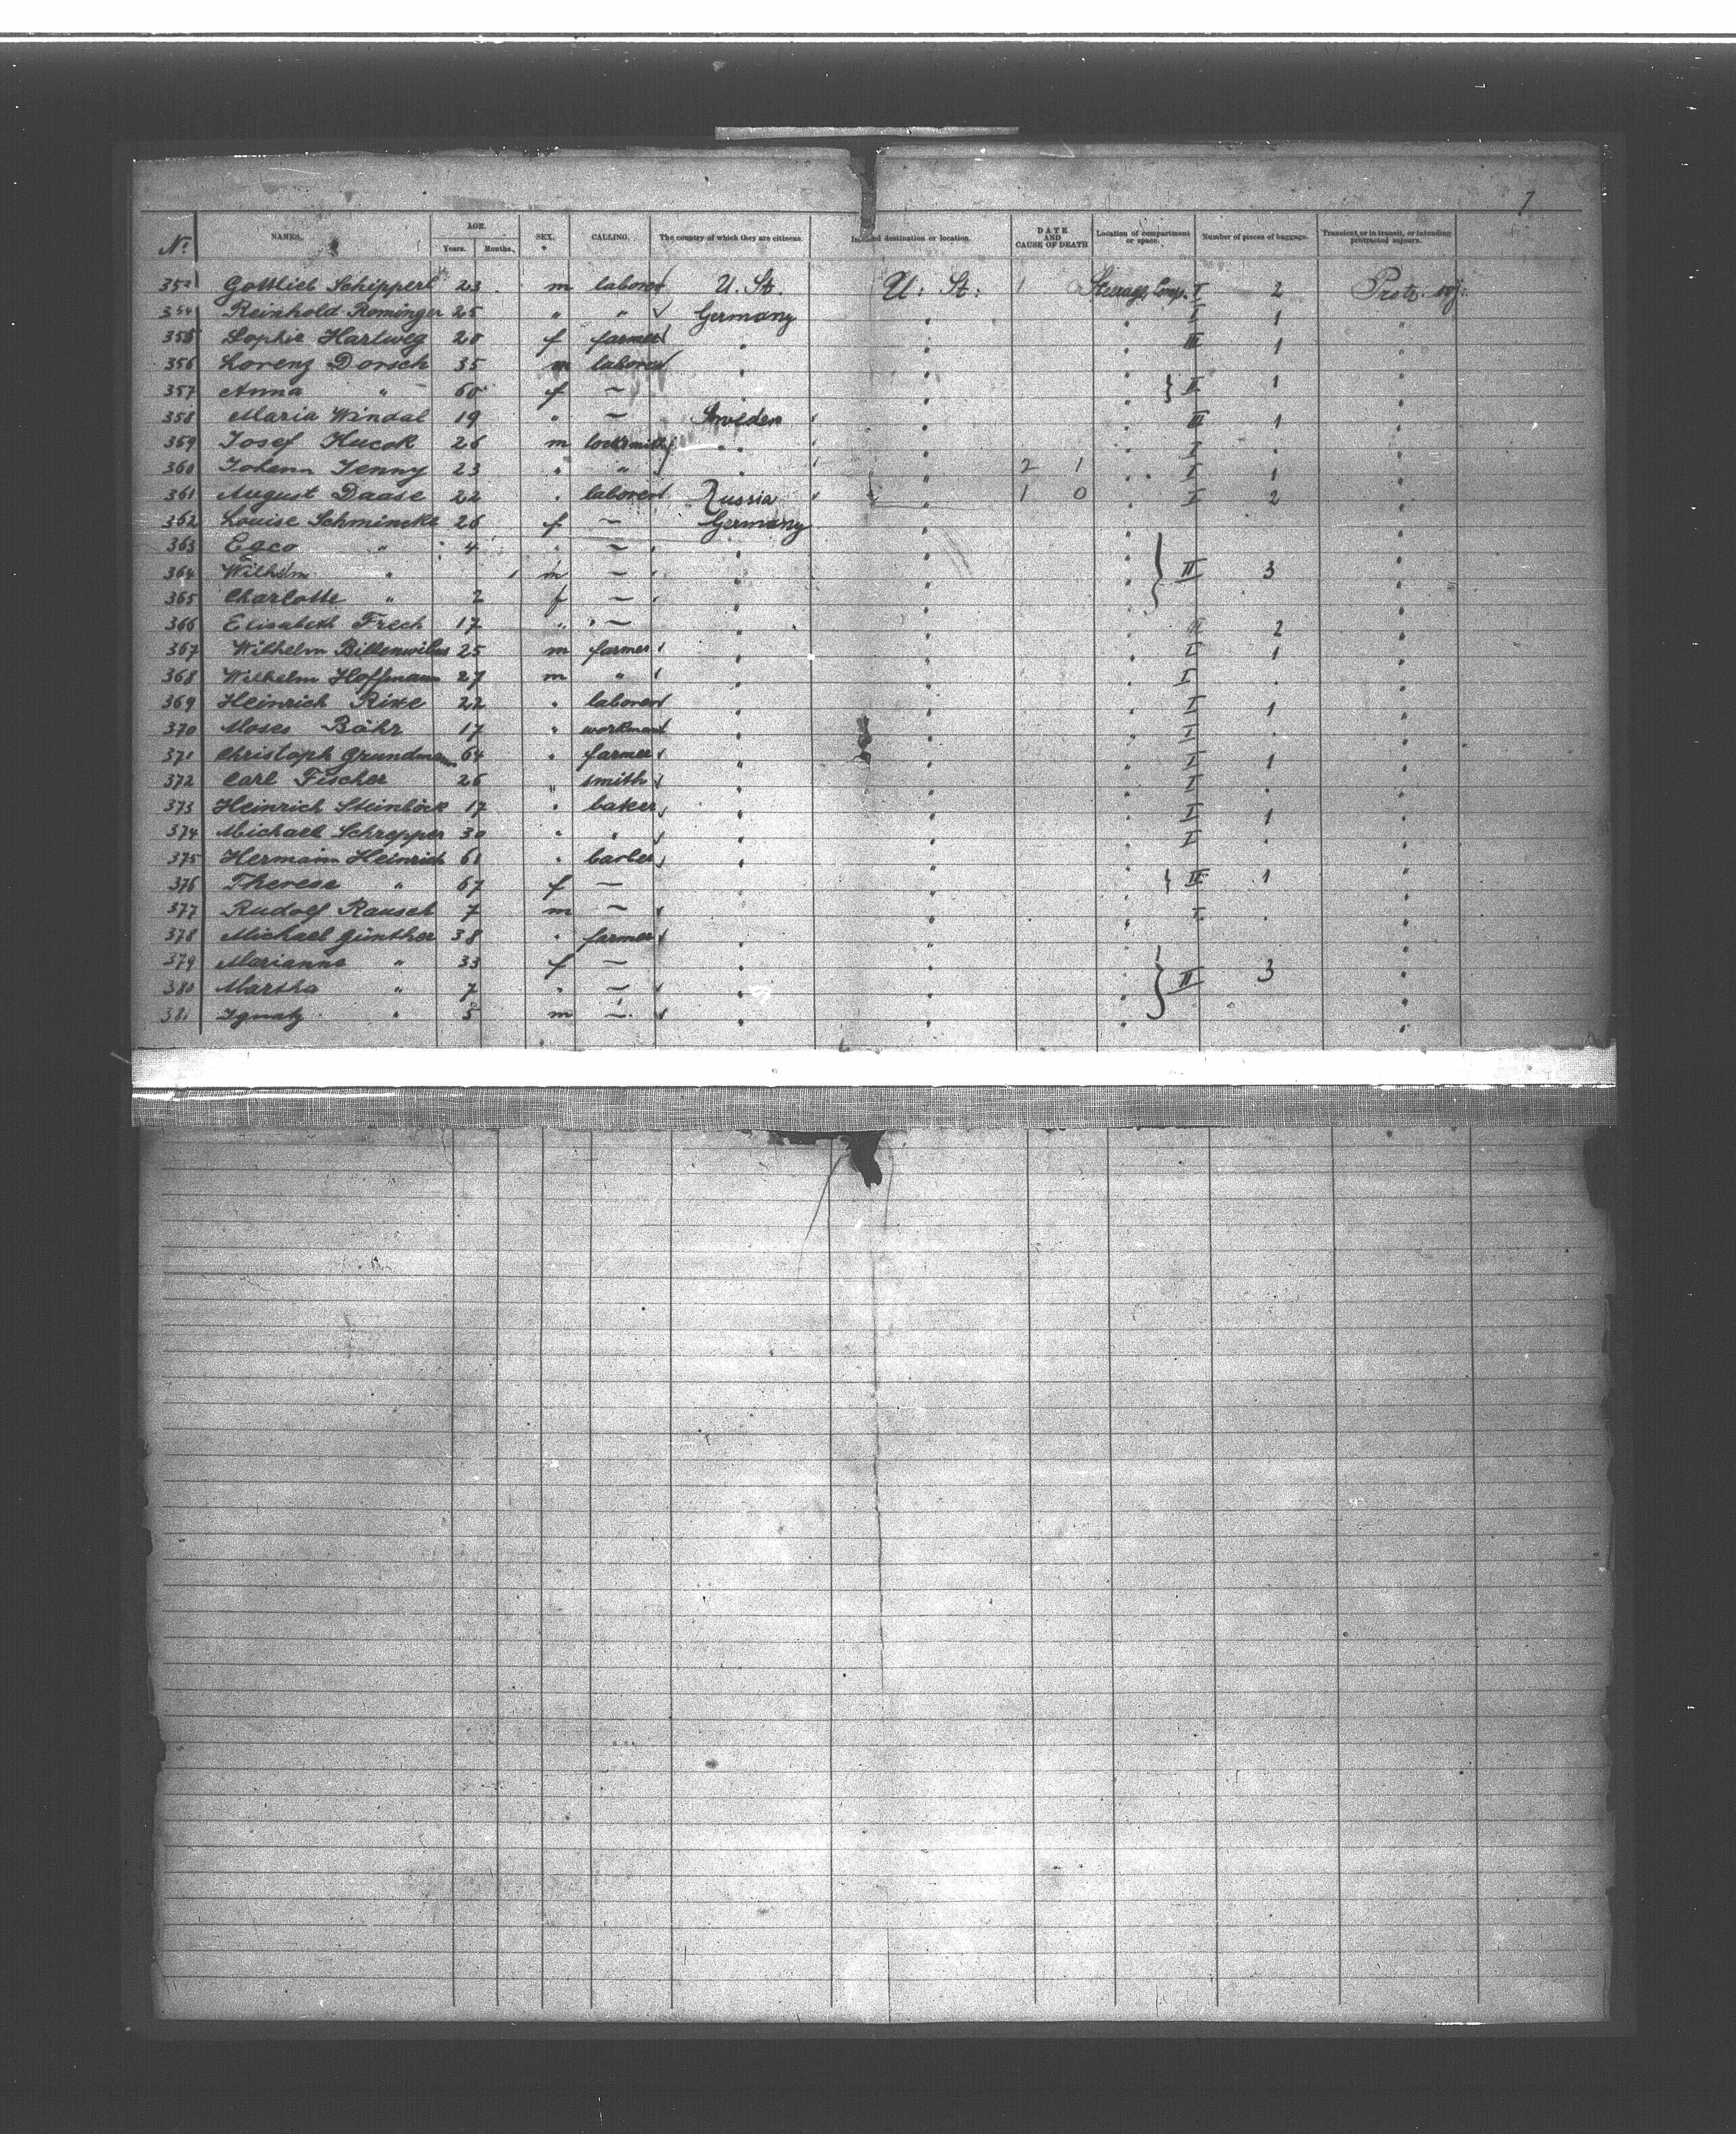 7
No. NAMES. AGE. Years. Months. SEX. CALLING. The country of which they are citizens. Intended destination or location. DATE AND CAUSE OF DEATH Location of compartment or space. Number of pieces of baggage. Transient or in transit, or intending protracted sojourn.
Gottlieb Schipperl 23 m laborer U. St. U. St. 1 0 Steerage, Comp. I 2
354 Reinhold Rominger 25 " " Germany " " I 1 "
355 Sophie Hartweg 20 f farmer " " " III 1 "
356 Lorenz Dorsch 35 m laborer " " "
357 Anna " 60 f — " " " } II 1 "
358 Maria Windal 19 " — Sweden " " III 1 "
359 Josef Hucok 26 m locksmith " " " I " "
360 Johann Jenny 23 " " " 2 1 " I 1 "
361 August Daase 22 " laborer Russia " 1 0 " I 2 "
362 Louise Schmincke 26 f — Germany " "
363 " 4 " — " " " "
364 Wilhelm " m — " " " II 3 "
365 Charlotte " 2 f — " " " "
366 Elisabeth Frech 17 " — " " " III 2 "
367 Wilhelm 25 m farmer " " " I 1 "
368 Wilhelm Hoffmann 27 m " " " " I " "
369 Heinrich 22 " laborer " " " I 1 "
370 Moses Bähr 17 " workman " " I " "
371 Christoph Grundmann 64 " farmer " " " I 1 "
372 Carl Fischer 26 " smith " " " I " "
373 Heinrich Steinböck 17 " baker " " " I 1 "
374 Michael Schrepper 30 " " " " " I " "
375 Hermann Heinrich 61 " barber " " "
376 Therese " 67 f — " " " } II 1 "
377 Rudolf Rausch 7 m — " " " I " "
378 Michael Günther 38 " farmer " " "
379 Marianne " 33 f — " " "
380 Martha " 7 " — " " " II 3 "
381 Ignatz " 5 m — " " " "